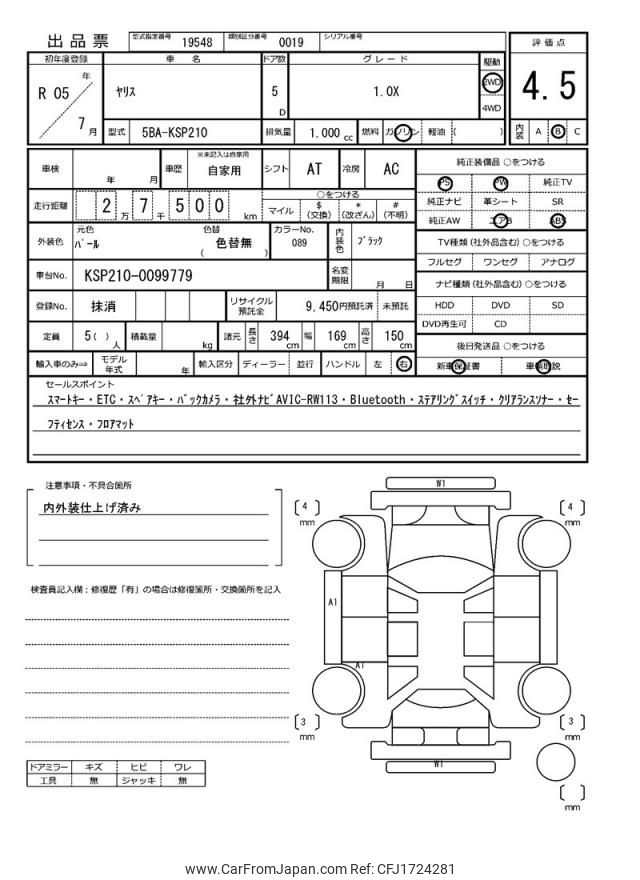 出品票 型式指定番号 19548 類別区分番号 0019 シリアル番号
評価点
初年度登録 車名 ドア数 グレード 駆動
R 05 年 7 月 ヤリス 5 D 1.0X 2WD 4WD
4.5
型式 5BA-KSP210 排気量 1,000 cc 燃料 ガソリン 軽油 ( )
内装 A B C
車検 年 月 車歴 ※未記入は自家用 自家用 シフト AT 冷房 AC
純正装備品 ○をつける
PS PW 純正TV
純正ナビ 革シート SR
純正AW エアB ABS
走行距離 2 万 7 千 5 0 0 km
○をつける
マイル $ (交換) * (改ざん) # (不明)
外装色 元色 パール 色替 色替無 ( ) カラーNo. 089 内装色 ブラック
TV種類 (社外品含む) ○をつける
フルセグ ワンセグ アナログ
車台No. KSP210-0099779 名変期限 月 日
ナビ種類 (社外品含む) ○をつける
HDD DVD SD
DVD再生可 CD
登録No. 抹消 リサイクル預託金 9,450円預託済 未預託
定員 5( ) 人 積載量 kg 諸元 長さ 394 cm 幅 169 cm 高さ 150 cm
後日発送品 ○をつける
新車保証書 車輌取説
輸入車のみ⇒ モデル年式 年 輸入区分 ディーラー 並行 ハンドル 左 右
セールスポイント
スマートキー・ETC・スペアキー・バックカメラ・社外ナビAVIC-RW113・Bluetooth・ステアリングスイッチ・クリアランスソナー・セー
フティセンス・フロアマット
注意事項・不具合箇所
内外装仕上げ済み
検査員記入欄：修復歴「有」の場合は修復箇所・交換箇所を記入
W1
[ 4 ] mm
[ 4 ] mm
A1
A1
[ 3 ] mm
[ 3 ] mm
W1
[ ] mm
ドアミラー キズ ヒビ ワレ
工具 無 ジャッキ 無
www.CarFromJapan.com Ref: CFJ1724281